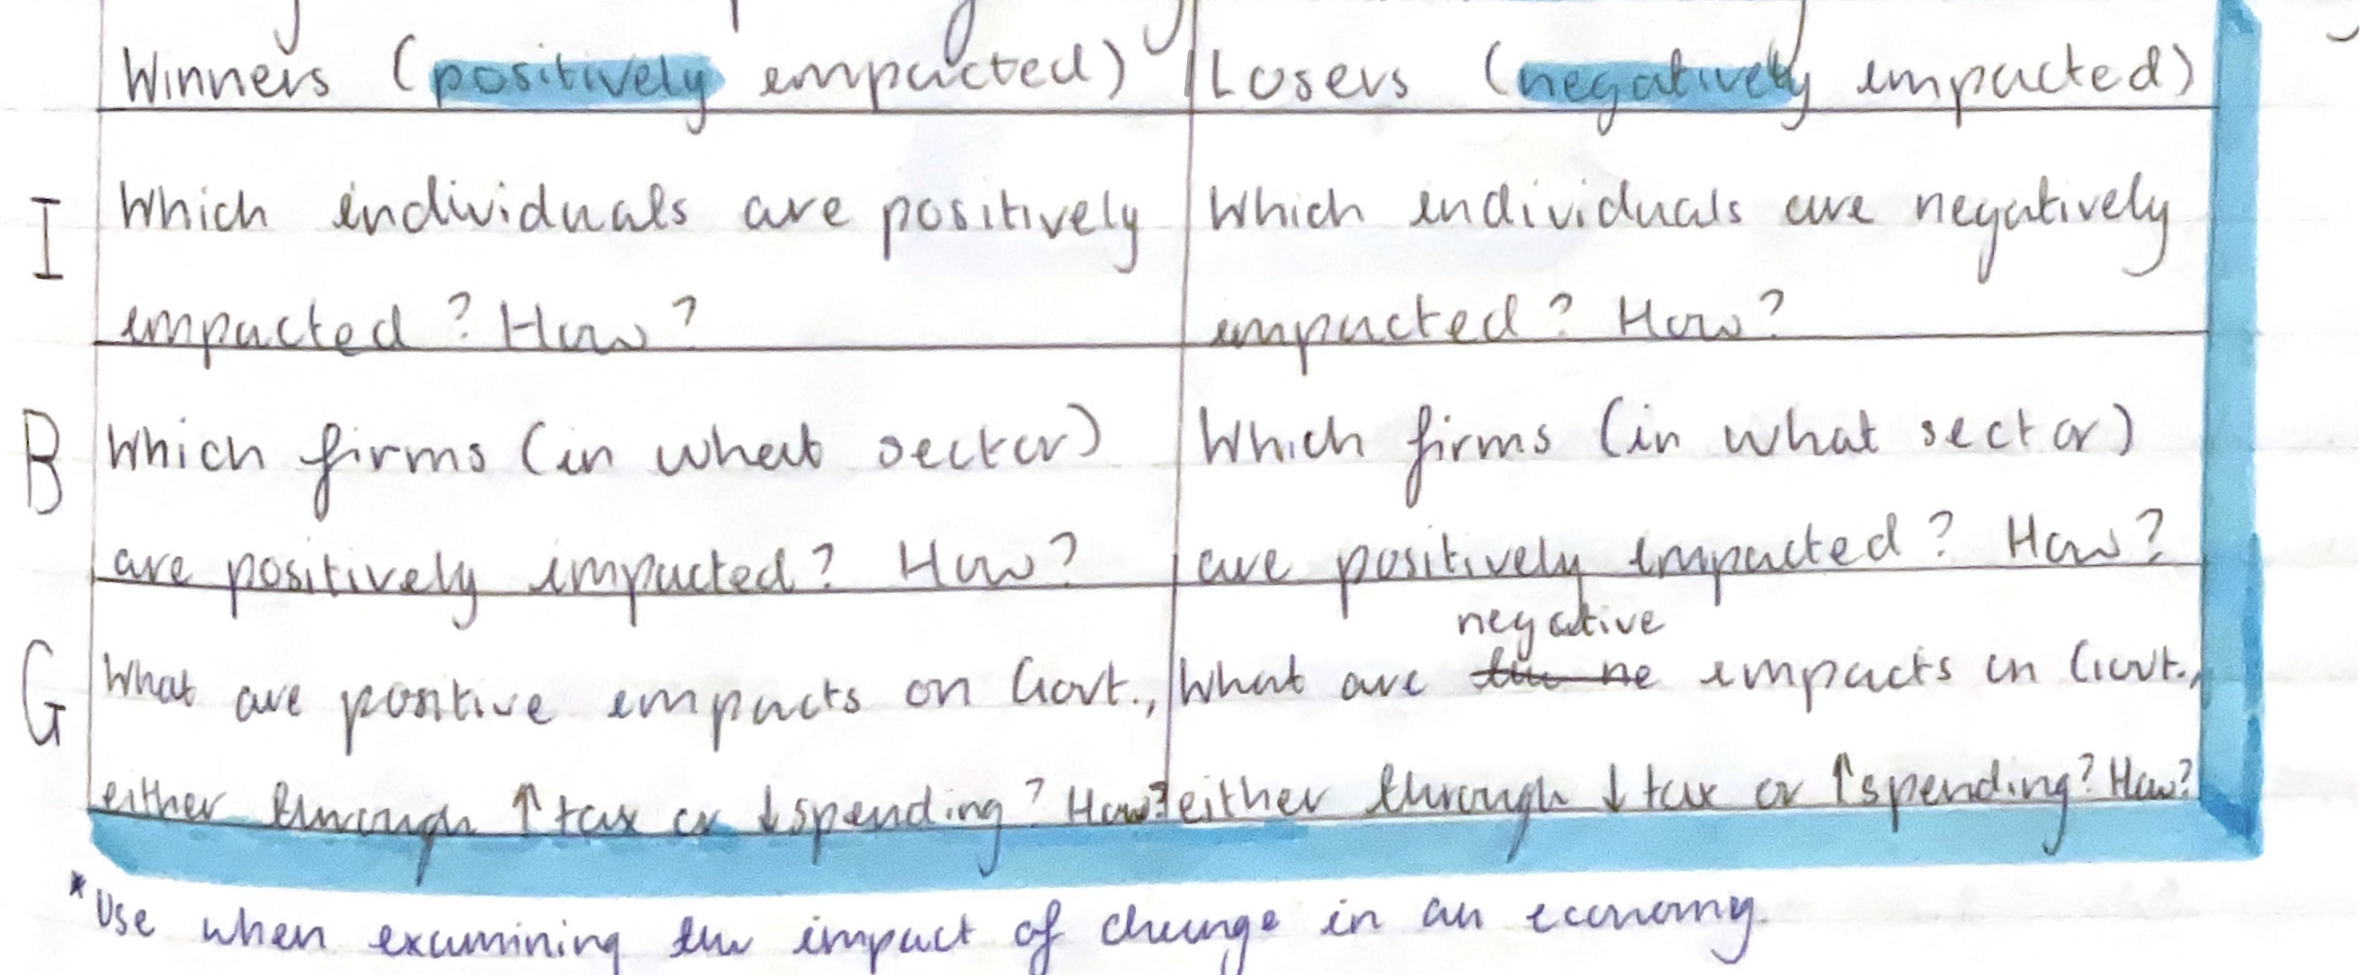 Winners (positively impacted)
Losers (negatively impacted)
I
Which individuals are positively
impacted? How?
Which individuals are negatively
impacted? How?
B
Which firms (in what sector)
are positively impacted? How?
Which firms (in what sector)
are positively impacted? How?
G
What are positive impacts on Govt.,
either through ↑tax or ↓spending? How?
negative
What are the ne impacts on Govt.,
either through ↓tax or ↑spending? How?
*Use when examining the impact of change in an economy.